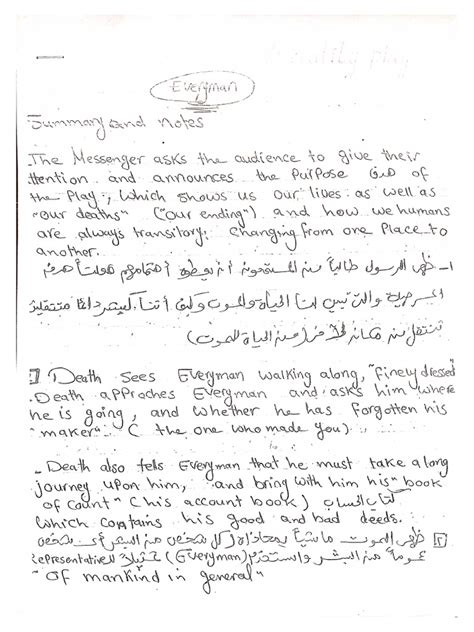 Morality play
Everyman
Summary and notes
.The Messenger asks the audience to give their
Attention and announces the Purpose of
the Play, which shows us our lives as well as
"our deaths" ("our ending") and how we humans
are always transitory. Changing from one Place to
another.
١- ظهر الرسول طالباً من المستمعين أن يعطوا اهتمامهم لهدف هذه
المسرحية والتي تبين لنا الحياة والموت وكيف أننا كبشر دائماً متنقلين
ننتقل من مكان لآخر (من الحياة للموت)
Death sees Everyman walking along, "finely dressed"
.Death approches Everyman and asks him where
he is going, and whether he has forgotten his
"maker". (the one who made you)
_ Death also tells Everyman that he must take a long
journey upon him, and bring with him his "book
of count" (his account book) كتاب الحساب
which contains his good and bad deeds.
٢ ظهر الموت ماشياً
عموماً من البشر واستخدم (Everyman) representative
"of mankind in general"